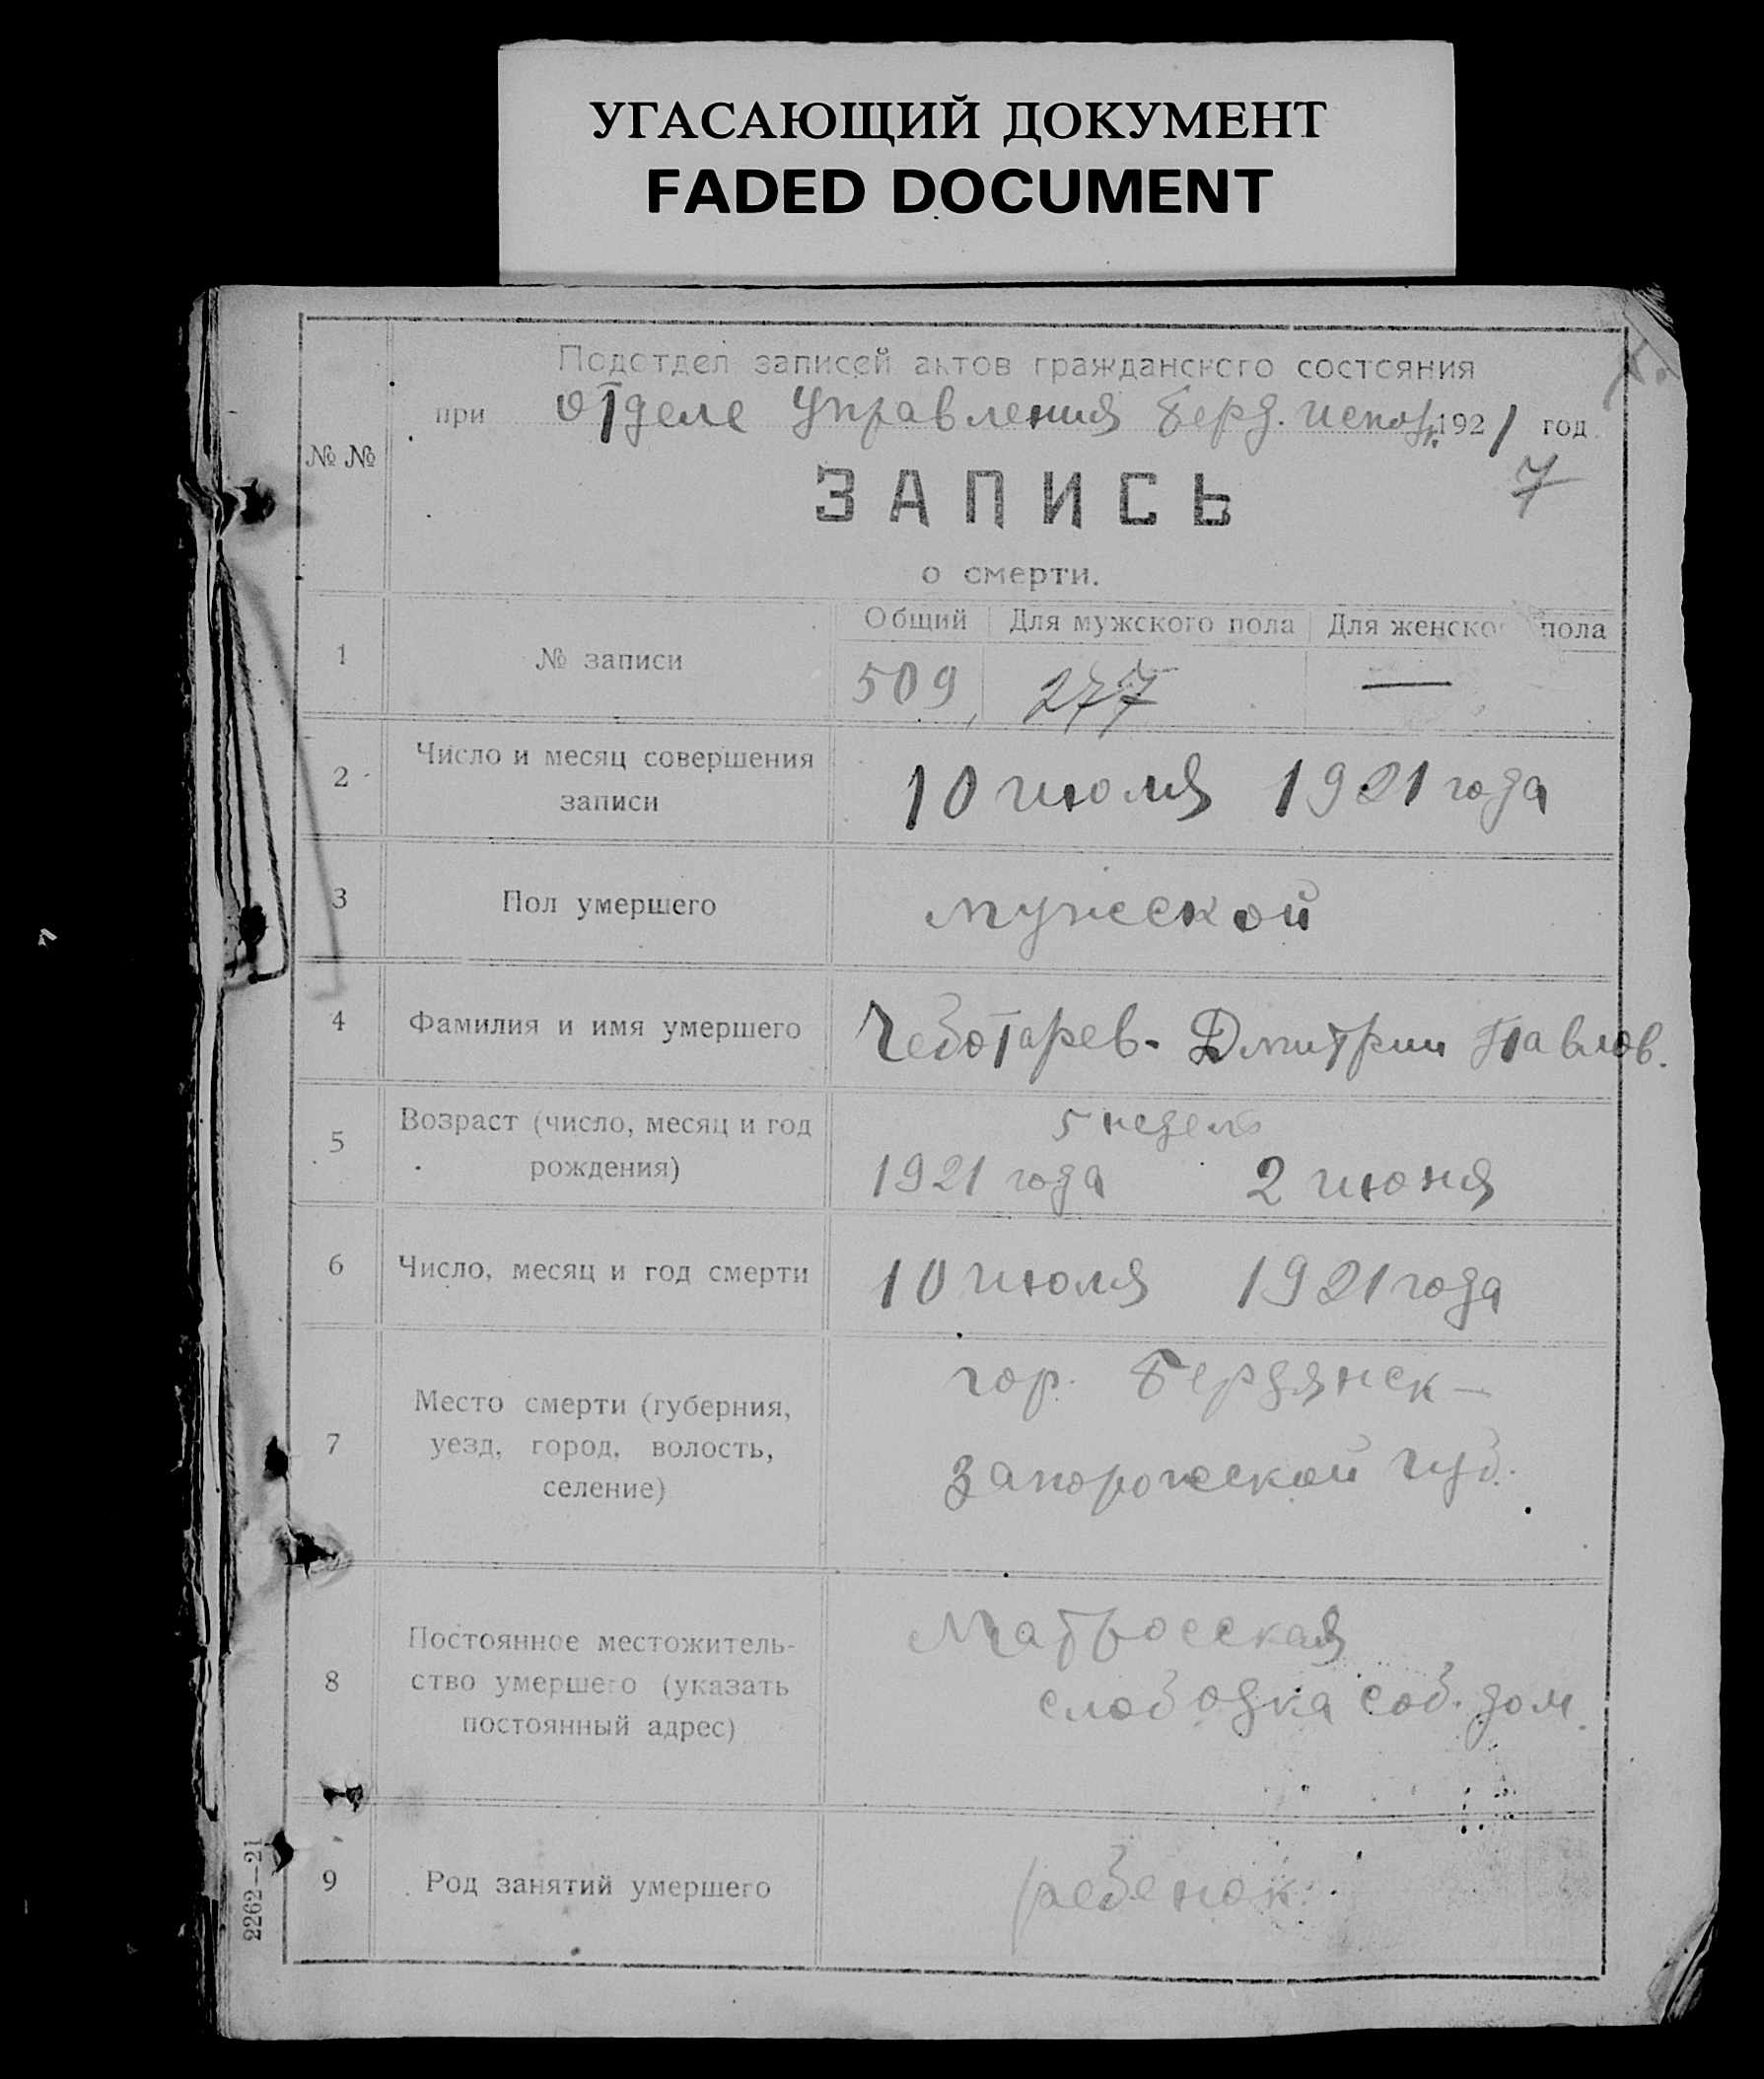 УГАСАЮЩИЙ ДОКУМЕНТ
FADED DOCUMENT
№ №
Подотдел записей актов гражданского состояния
при отделе управления Берд. исполк. 1921 год
7
ЗАПИСЬ
о смерти.
1 № записи
Общий Для мужского пола Для женского пола
509 277 —
2 Число и месяц совершения
записи
10 июля 1921 года
3 Пол умершего мужской
4 Фамилия и имя умершего Чеботарев. Дмитрии Павлов.
5 Возраст (число, месяц и год
рождения)
5 недель
1921 года 2 июня
6 Число, месяц и год смерти 10 июля 1921 года
7 Место смерти (губерния,
уезд, город, волость,
селение)
гор. Бердянск —
Запорожской губ.
8 Постоянное местожитель-
ство умершего (указать
постоянный адрес)
Матросская
слободка соб. дом.
9 Род занятий умершего ребенок.
2262—21